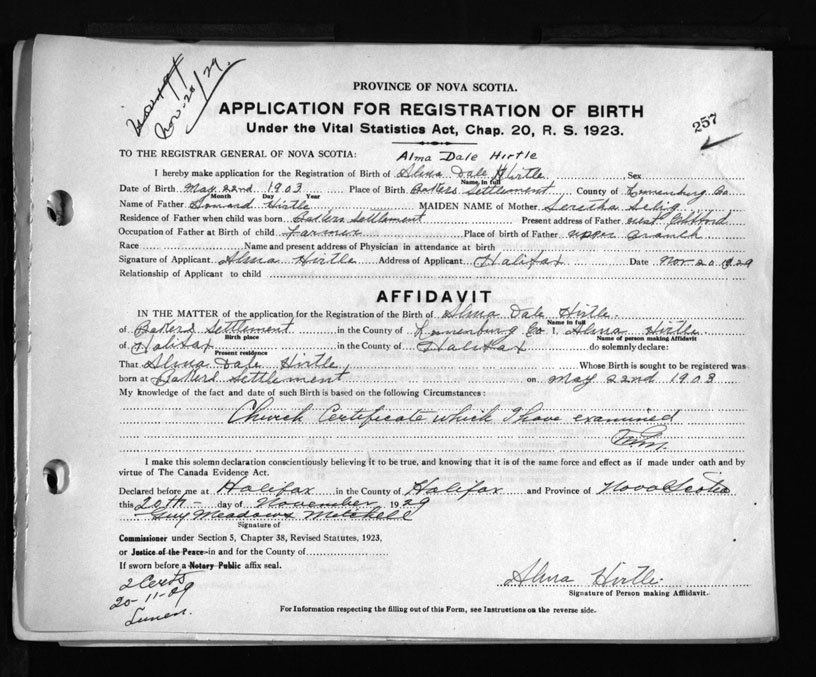 Nov. 20/29.
257
PROVINCE OF NOVA SCOTIA.
APPLICATION FOR REGISTRATION OF BIRTH
Under the Vital Statistics Act, Chap. 20, R. S. 1923.
TO THE REGISTRAR GENERAL OF NOVA SCOTIA: Alma Dale Hirtle
I hereby make application for the Registration of Birth of Alma Dale Hirtle Sex
Name in full
Date of Birth May 22nd 1903 Place of Birth Bakers Settlement County of Lunenburg Co
Month Day Year
Name of Father Howard Hirtle MAIDEN NAME of Mother Seretha
Residence of Father when child was born Bakers Settlement Present address of Father West
Occupation of Father at Birth of child Farmer Place of birth of Father Upper Branch
Race Name and present address of Physician in attendance at birth
Signature of Applicant Alma Hirtle Address of Applicant Halifax Date Nov 20 1929
Relationship of Applicant to child
AFFIDAVIT
IN THE MATTER of the application for the Registration of the Birth of Alma Dale Hirtle.
Name in full
of Bakers Settlement in the County of Lunenburg Co I, Alma Hirtle
Birth place Name of person making Affidavit
of Halifax in the County of Halifax do solemnly declare:
Present residence
That Alma Dale Hirtle Whose Birth is sought to be registered was
born at Bakers Settlement on May 22nd 1903
My knowledge of the fact and date of such Birth is based on the following Circumstances:
Church Certificate which I have examined
I make this solemn declaration conscientiously believing it to be true, and knowing that it is of the same force and effect as if made under oath and by
virtue of The Canada Evidence Act.
Declared before me at Halifax in the County of Halifax and Province of Nova Scotia
this 20th day of November 1929
Guy Meadows Mitchell
Signature of
Commissioner under Section 5, Chapter 38, Revised Statutes, 1923,
or Justice of the Peace in and for the County of
If sworn before a Notary Public affix seal.
2 Certs
20-11-29
Lunen.
Alma Hirtle
Signature of Person making Affidavit.
For Information respecting the filling out of this Form, see Instructions on the reverse side.